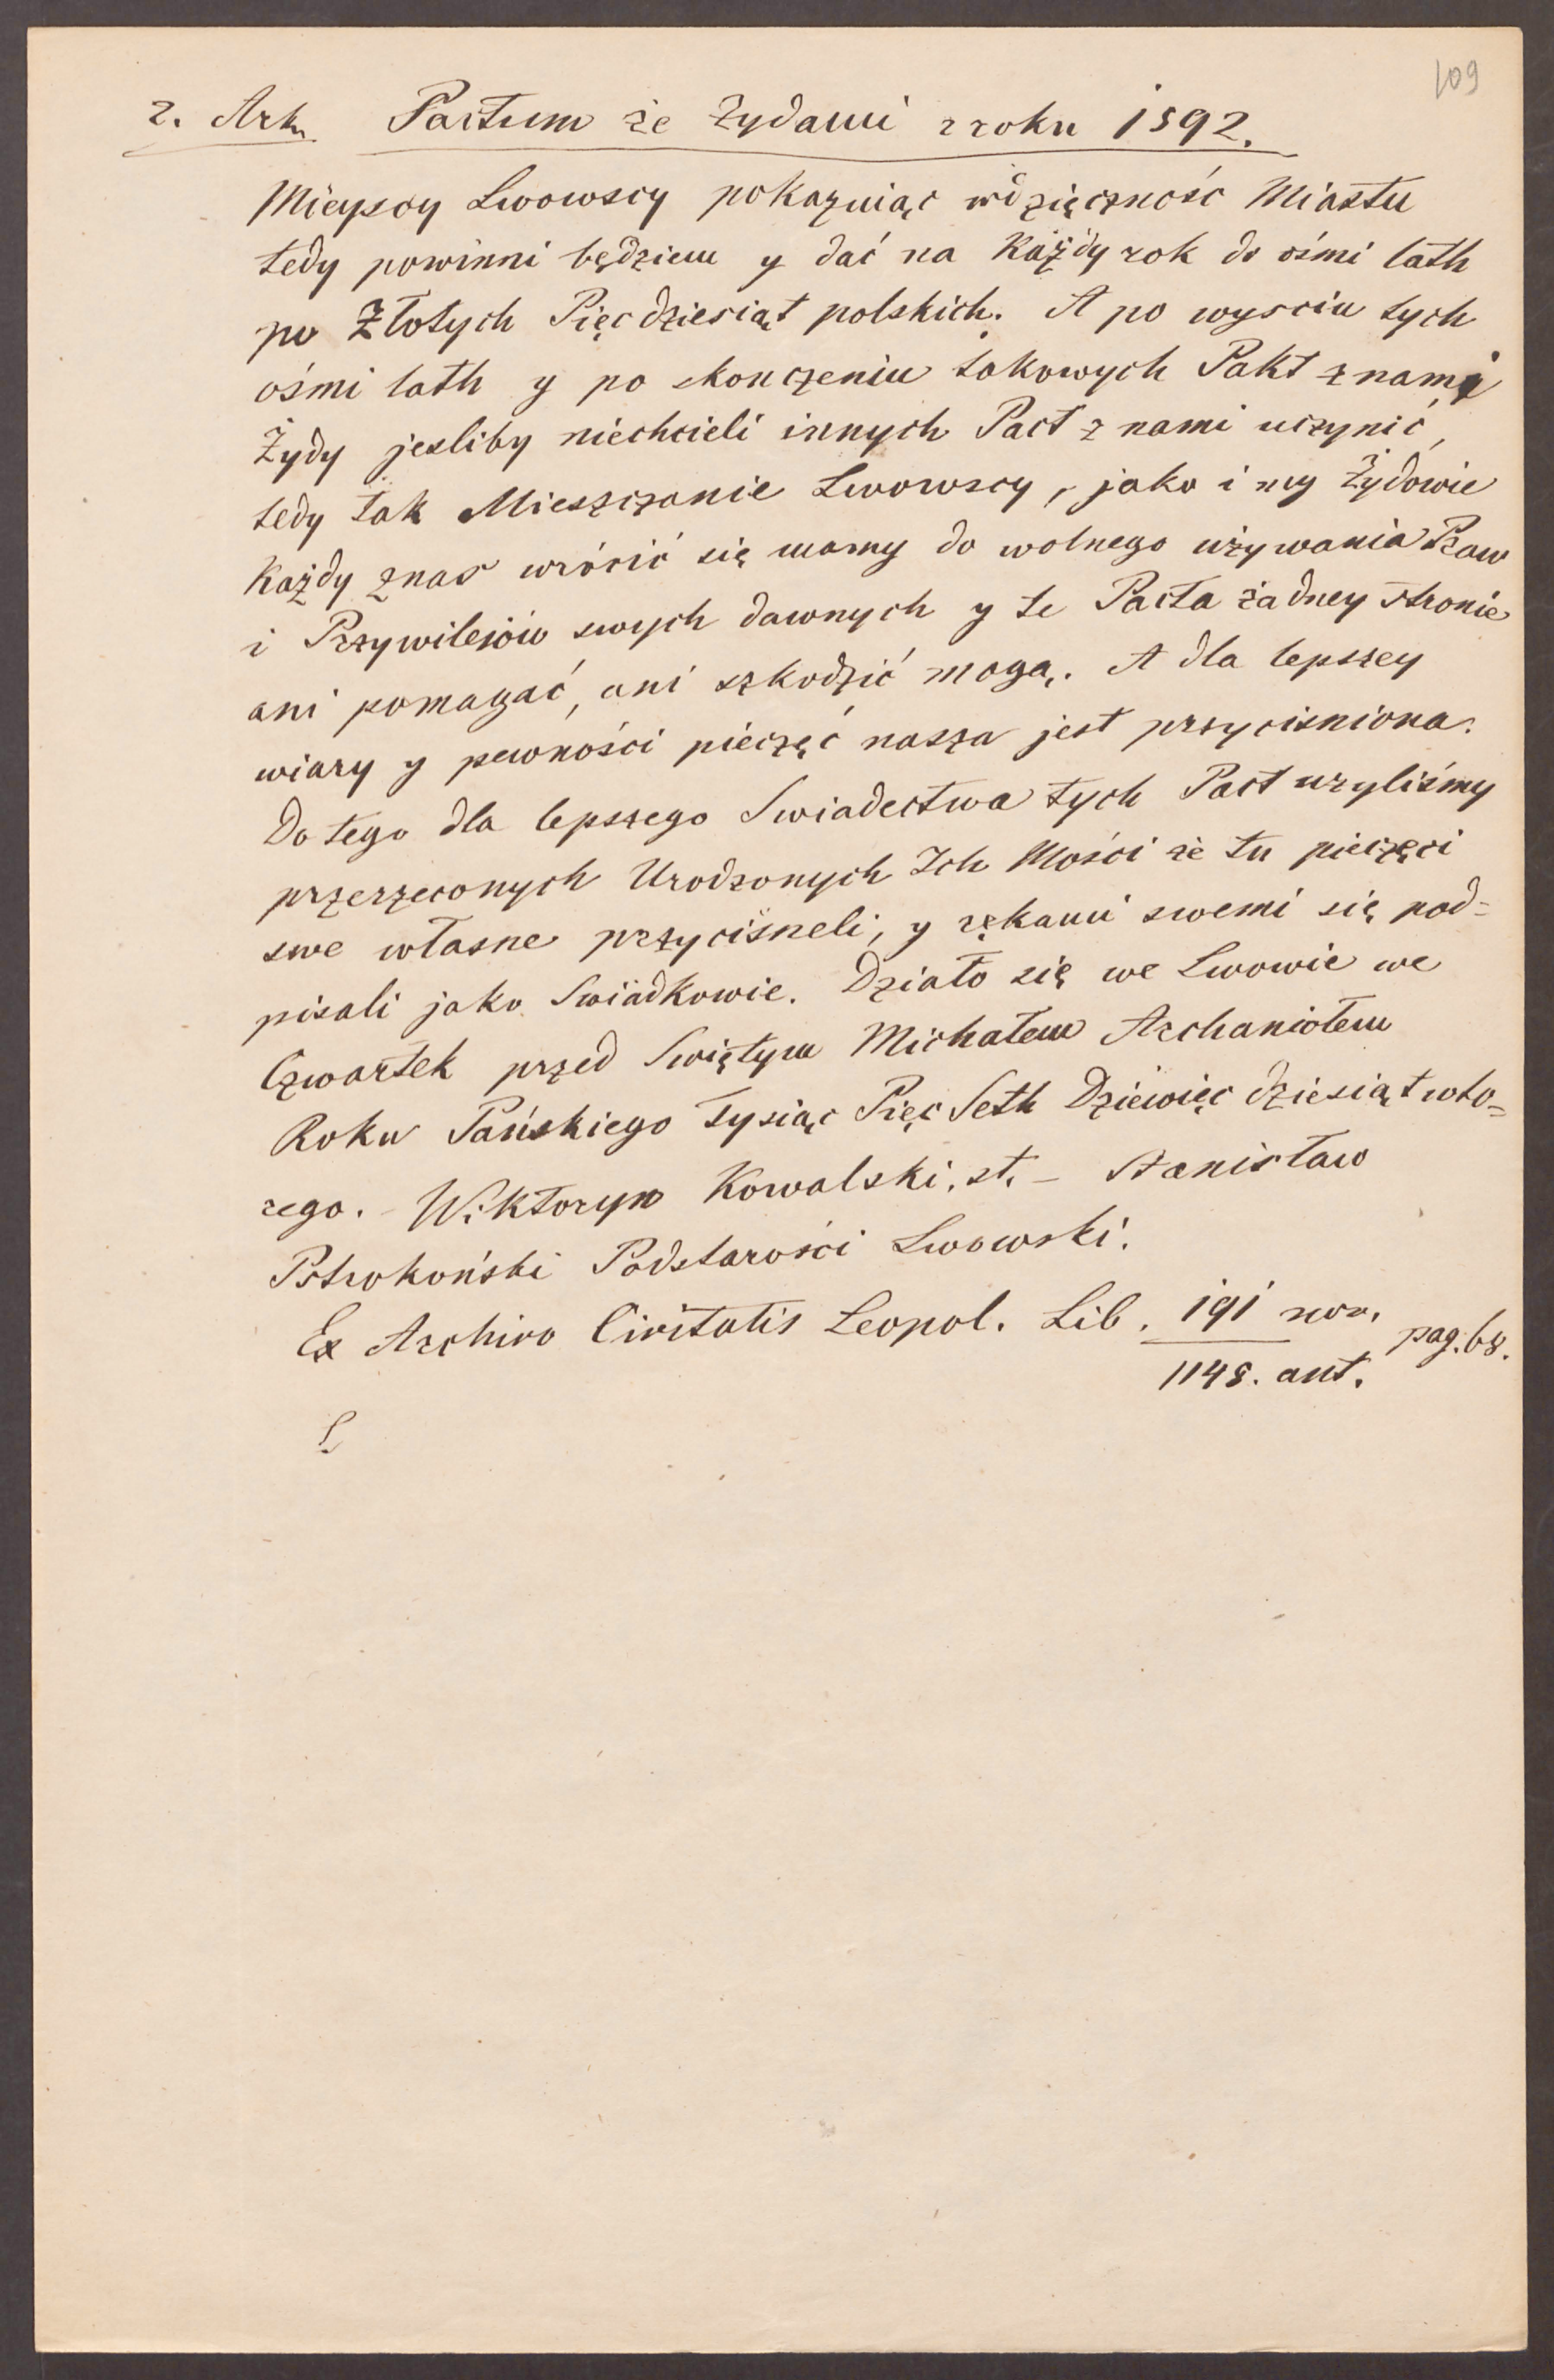 109
2. Ark. Pactum że Żydami z roku 1592.
Mieyscy Lwowscy pokazuiąc wdzięczność Miastu
tedy powinni będziem y dać na Każdy rok do ośmi lath
po Złotych Pięcdziesiąt polskich. A po wysciu tych
ośmi lath y po skonczeniu takowych Pakt z nami
Żydy jesliby niechcieli innych Pact z nami uczynić,
tedy tak Mieszczanie Lwowscy, jako i my Żydowie
Każdy znas wrócić się mamy do wolnego używania Praw
i Przywilejów swych dawnych y te Pacta żadney stronie
ani pomagać, ani szkodzić mogą. A dla lepszey
wiary y pewności pieczęć nasza jest przycisniona.
Do tego dla lepszego Swiadectwa tych Pact użyliśmy
przerzeconych Urodzonych Ich Mości że tu pieczęci
swe własne przycisneli, y rękami swemi się pod=
pisali jako Swiadkowie. Działo się we Lwowie we
Czwartek przed Swiętym Michałem Archaniołem
Roku Pańskiego Tysiąc Pięc Seth Dziewięc dziesiąt wto=
rego. Wiktoryn Kowalski, st. - Stanisław
Pstrokoński Podstarości Lwowski.
Ex Archivo Civitatis Leopol. Lib. 191 nov. pag. 68.
1148. ant.